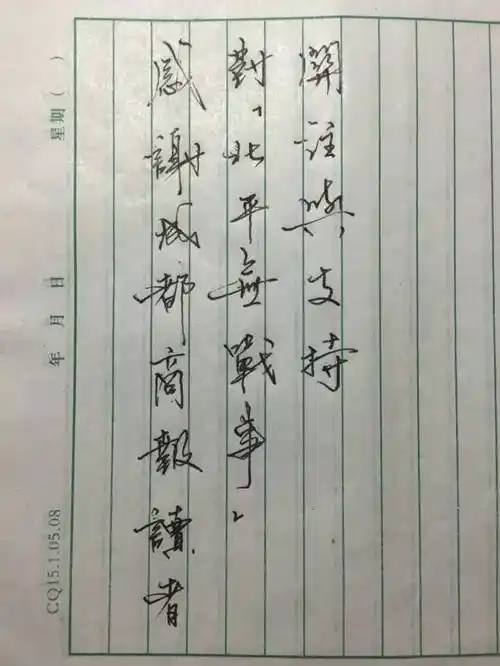 CQ15.1.05.08 年 月 日 星期（ ）
感謝成都商報讀者
對「北平無戰事」
關註與支持